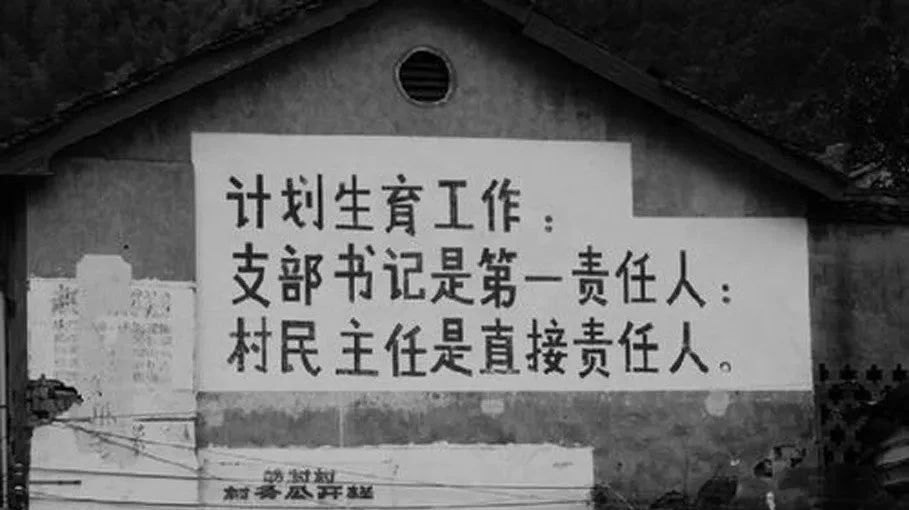 计划生育工作：
支部书记是第一责任人：
村民主任是直接责任人。
村务公开栏